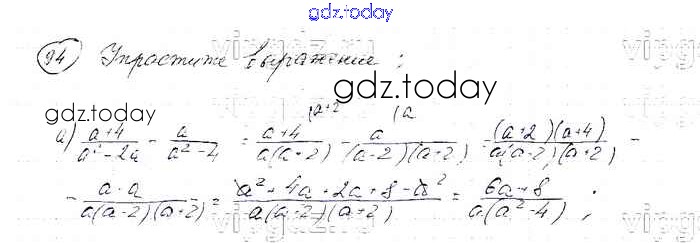 gdz.today
94 Упростите выражение :
gdz.today
|a+2 |a
а) (a+4)/(a²-2a) - a/(a²-4) = (a+4)/(a(a-2)) - a/((a-2)(a+2)) = ((a+2)(a+4))/(a(a-2)(a+2)) -
- (a·a)/(a(a-2)(a+2)) = (a²+4a+2a+8-a²)/(a(a-2)(a+2)) = (6a+8)/(a(a²-4)) ;